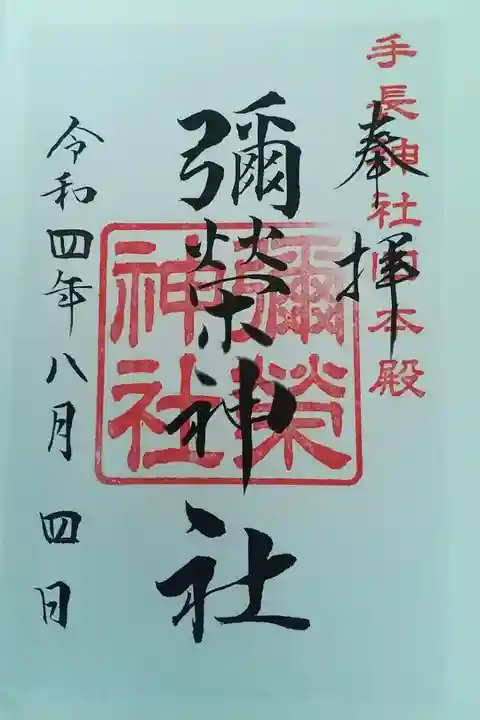 手長神社内本殿
奉拝
彌榮神社
彌榮神社
令和四年八月四日